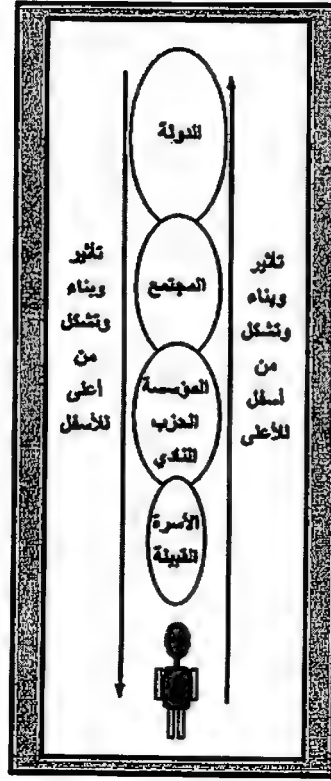 الدولة
المجتمع
المؤسسة
الحزب
النادي
الأسرة
القبيلة
تأثير
وبناء
وتشكل
من
أسفل
للأعلى
تأثير
وبناء
وتشكل
من
أعلى
للأسفل